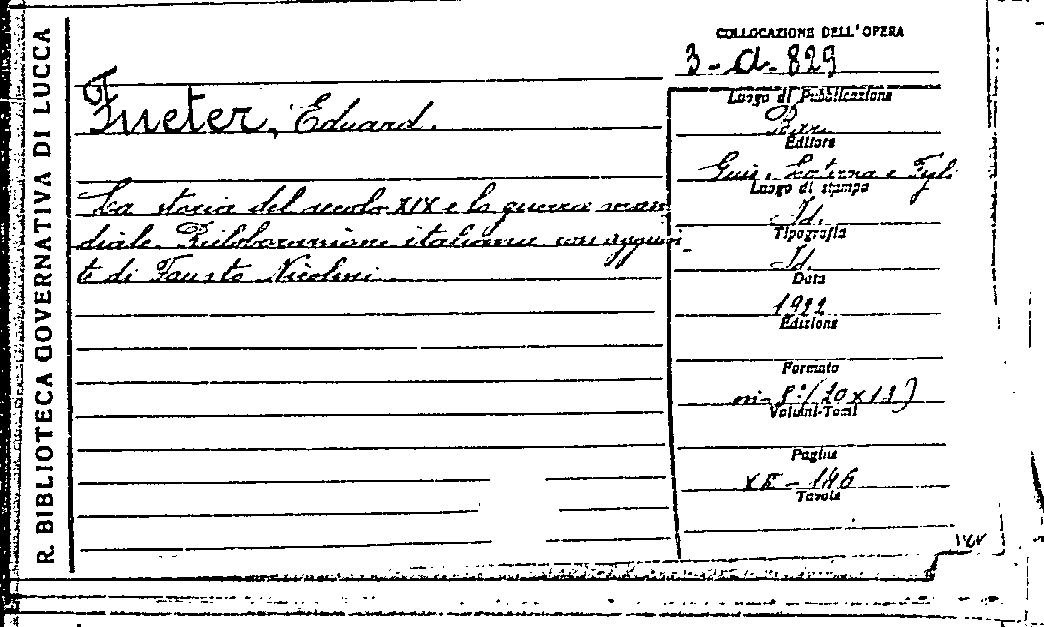 R. BIBLIOTECA GOVERNATIVA DI LUCCA
COLLOCAZIONE DELL'OPERA
3-a-829
Fueter, Eduard.
La storia del secolo XIX e la guerra mon
diale. Rielaborazione italiana con aggiun-
te di Fausto Nicolini
Luogo di Pubblicazione
Bari
Editore
Gius. Laterza e Figli
Luogo di stampa
Id.
Tipografia
Id.
Data
1922
Edizione
Formato
in-8° (20x13)
Volumi-Tomi
Pagine
XII-146
Tavole